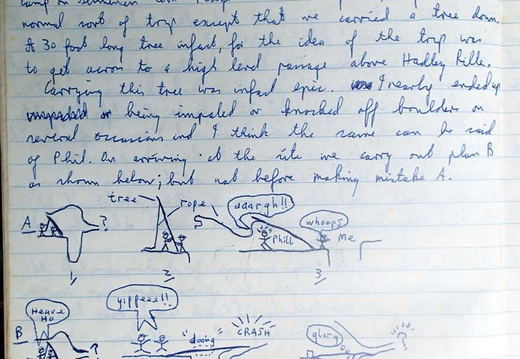 normal sort of trip except that we carried a tree down.
A 30 foot long tree infact, for the idea of the trip was
to get across to a high level passage above Hadley Rille.
Carrying this tree was infact epic. I nearly ended up
being impaled or knocked off boulders on
several occasions and I think the same can be said
of Phil. On arriving at the site we carry out plan B
as shown below; but not before making mistake A.
tree rope uaargh!! whoops
A ? Phill Me
1 2 3
Heave Ho yippeee!! "doing" CRASH glory ?
B ?